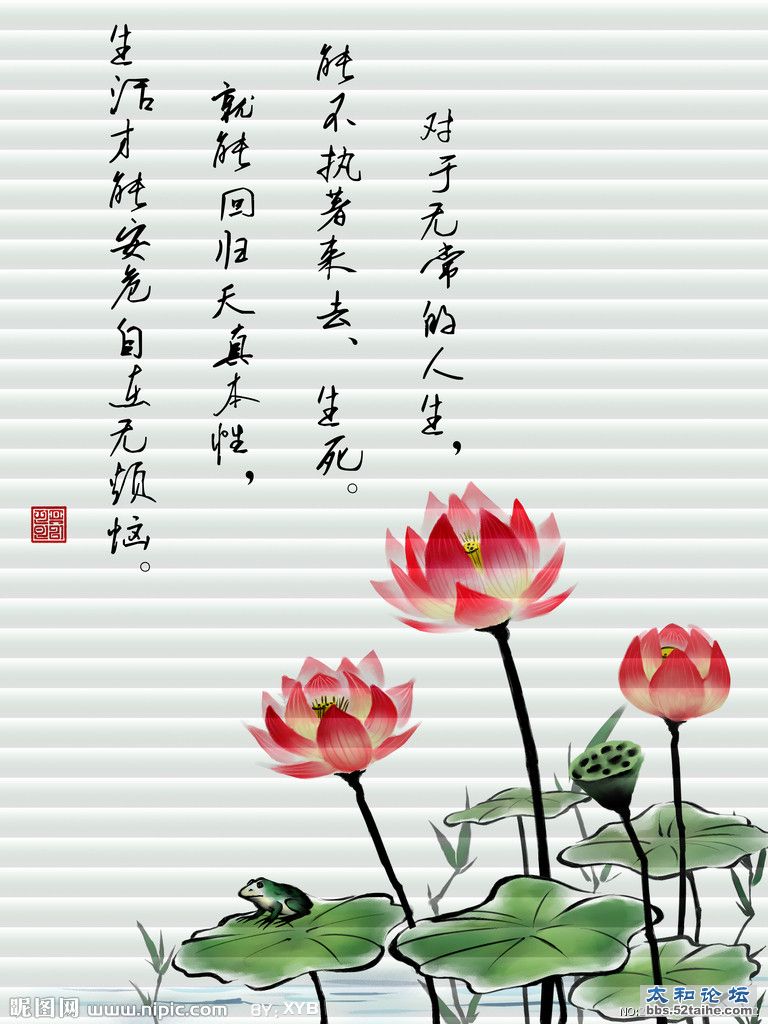 对于无常的人生，
能不执著来去、生死。
就能回归天真本性，
生活才能安危自在无烦恼。
昵图网 www.nipic.com BY: XYB
NO:
太和论坛
bbs.52taihe.com